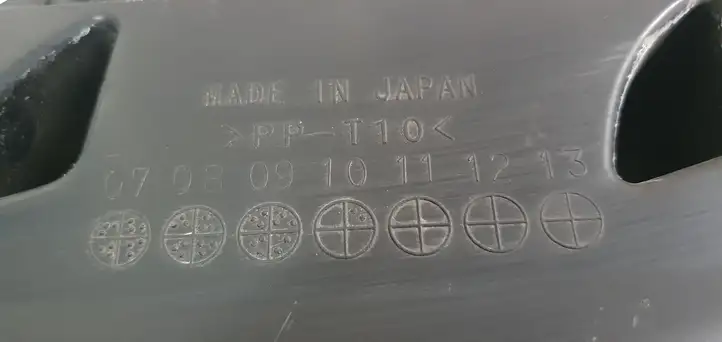 MADE IN JAPAN
>PP-T10<
07 08 09 10 11 12 13